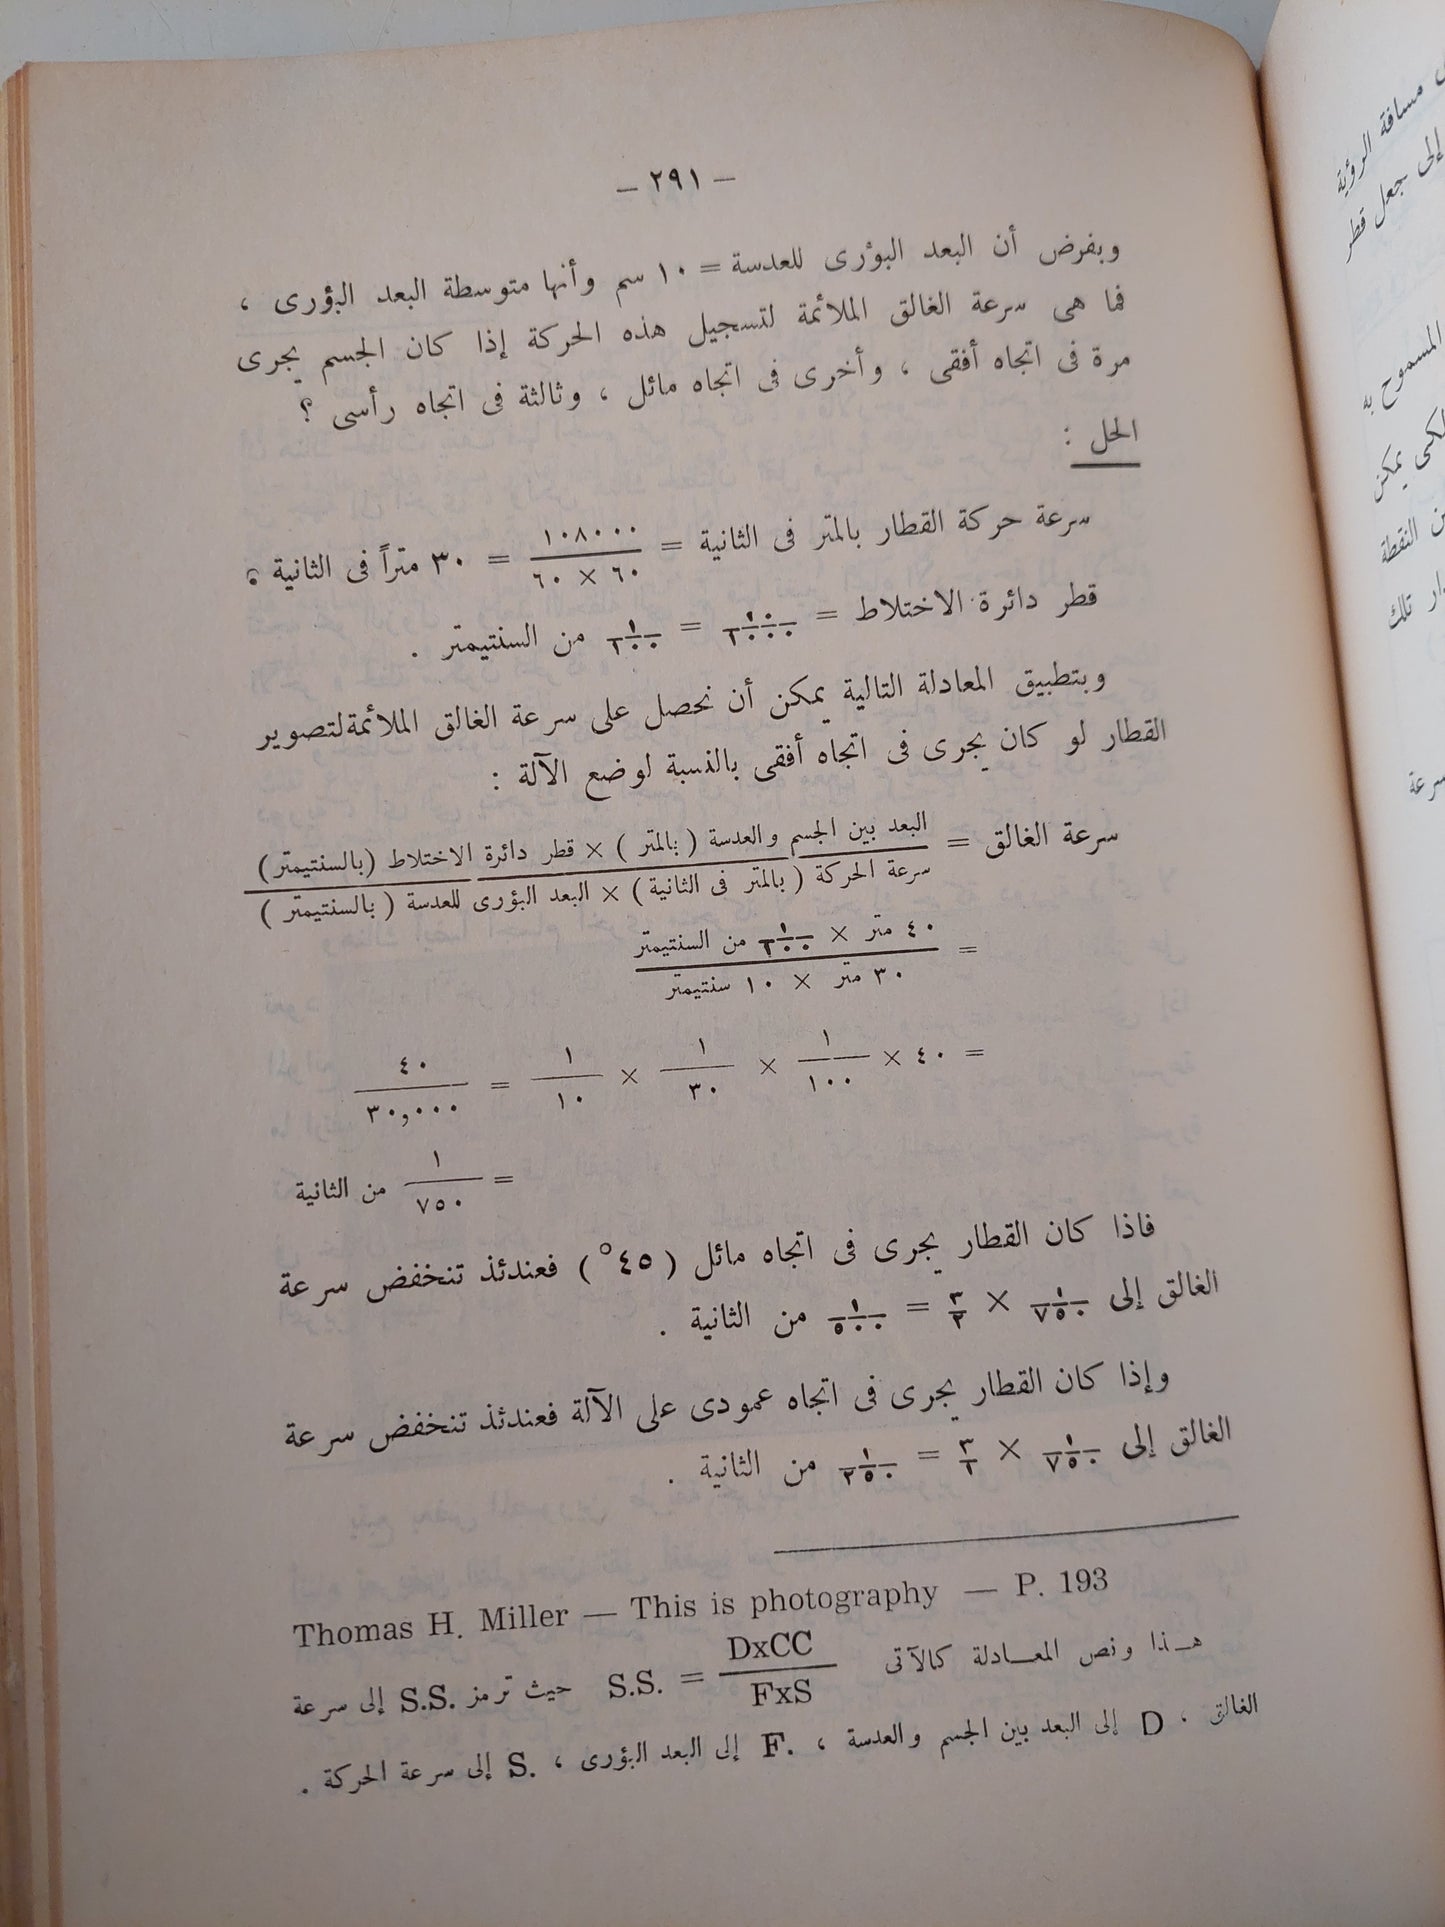 — ٢٩١ —
وبفرض أن البعد البؤرى للعدسة = ١٠ سم وأنها متوسطة البعد البؤرى ،
فما هى سرعة الغالق الملائمة لتسجيل هذه الحركة إذا كان الجسم يجرى
مرة فى اتجاه أفقى ، وأخرى فى اتجاه مائل ، وثالثة فى اتجاه رأسى ؟
الحل :
سرعة حركة القطار بالمتر فى الثانية = ١٠٨٠٠٠ / ٦٠ × ٦٠ = ٣٠ متراً فى الثانية .
قطر دائرة الاختلاط = من السنتيمتر .
وبتطبيق المعادلة التالية يمكن أن نحصل على سرعة الغالق الملائمة لتصوير
القطار لو كان يجرى فى اتجاه أفقى بالنسبة لوضع الآلة :
سرعة الغالق = البعد بين الجسم والعدسة ( بالمتر ) × قطر دائرة الاختلاط (بالسنتيمتر)
سرعة الحركة ( بالمتر فى الثانية ) × البعد البؤرى للعدسة ( بالسنتيمتر )
= ٤٠ متر × من السنتيمتر
٣٠ متر × ١٠ سنتيمتر
= ٤٠ × ١/١٠٠ × ١/٣٠ × ١/١٠ = ٤٠/٣٠,٠٠٠
= ١/٧٥٠ من الثانية
فاذا كان القطار يجرى فى اتجاه مائل ( ٤٥° ) فعندئذ تنخفض سرعة
الغالق إلى ١/٧٥٠ × ٣/٢ = ١/٥٠٠ من الثانية .
وإذا كان القطار يجرى فى اتجاه عمودى على الآلة فعندئذ تنخفض سرعة
الغالق إلى ١/٧٥٠ × = ١/٢٥٠ من الثانية .
Thomas H. Miller — This is photography — P. 193
هــذا ونص المعــادلة كالآتى S.S. = DxCC / FxS حيث ترمز S.S. إلى سرعة
الغالق ، D إلى البعد بين الجسم والعدسة ، F. إلى البعد البؤرى ، S. إلى سرعة الحركة .
مسافة الرؤية
إلى جعل قطر
المسموح به
يمكن
النقطة
تلك